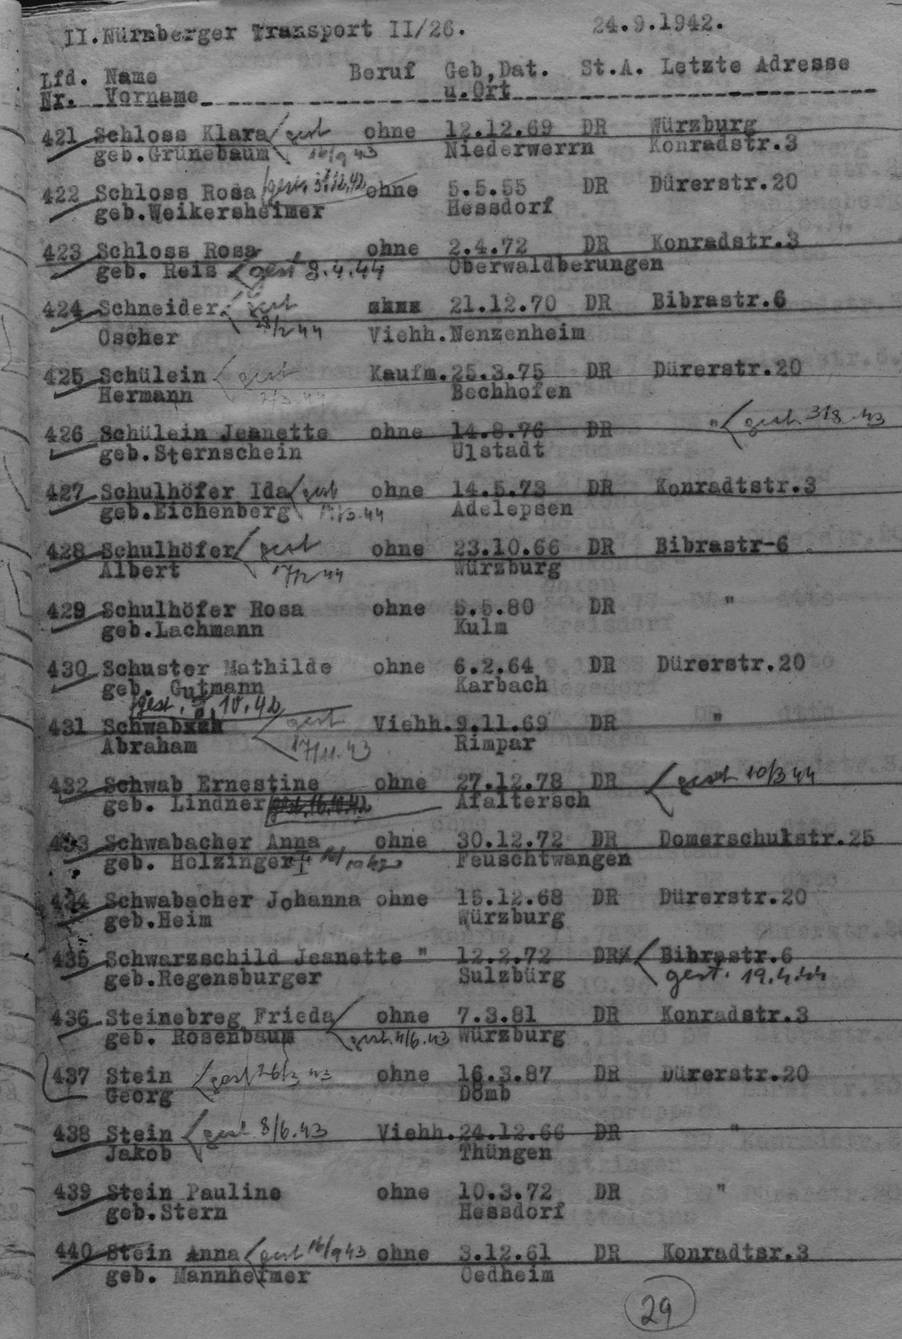 II.Nürnberger Transport II/26. 24.9.1942.
Lfd. Name Beruf Geb,Dat. St.A. Letzte Adresse
Nr. Vorname u.Ort
421 Schloss Klara gest ohne 12.12.69 DR Würzburg
geb.Grünebaum 16/9 43 Niederwerrn Konradstr.3
422 Schloss Rosa ohne 5.5.55 DR Dürerstr.20
geb.Weikersheimer Hessdorf
423 Schloss Rosa ohne 2.4.72 DR Konradstr.3
geb. Reis gest 8.4.44 Oberwaldberungen
424 Schneider. gest 21.12.70 DR Bibrastr.6
Oscher Viehh.Nenzenheim
425 Schülein gest Kaufm.25.3.75 DR Dürerstr.20
Hermann Bechhofen
426 Schülein Jeanette ohne 14.8.76 DR " gest 31/8 43
geb.Sternschein Ulstadt
427 Schulhöfer Ida gest ohne 14.5.73 DR Konradtstr.3
geb.Eichenberg Adelepsen
428 Schulhöfer gest ohne 23.10.66 DR Bibrastr-6
Albert 17/2 44 Würzburg
429 Schulhöfer Rosa ohne 5.5.80 DR "
geb.Lachmann Kulm
430 Schuster Mathilde ohne 6.2.64 DR Dürerstr.20
geb. Gutmann Karbach
431 Schwab gest Viehh.9.11.69 DR "
Abraham 17/11.43 Rimpar
432 Schwab Ernestine ohne 27.12.78 DR gest 10/3 44
geb. Lindner Afaltersch
433 Schwabacher Anna ohne 30.12.72 DR Domerschulstr.25
geb. Holzinger Feuschtwangen
434 Schwabacher Johanna ohne 15.12.68 DR Dürerstr.20
geb.Heim Würzburg
435 Schwarzschild Jeanette " 12.2.72 DR Bibrastr.6
geb.Regensburger Sulzbürg gest. 19.4.44
436 Steinebreg Frieda ohne 7.3.81 DR Konradstr.3
geb. Rosenbaum gest 4/6.43 Würzburg
437 Stein gest 26/3 43 ohne 16.3.87 DR Dürerstr.20
Georg Domb
438 Stein gest 8/6.43 Viehh.24.12.66 DR "
Jakob Thüngen
439 Stein Pauline ohne 10.3.72 DR "
geb.Stern Hessdorf
440 Stein Anna gest 16/9 43 ohne 3.12.61 DR Konradtsr.3
geb. Mannheimer Oedheim
29